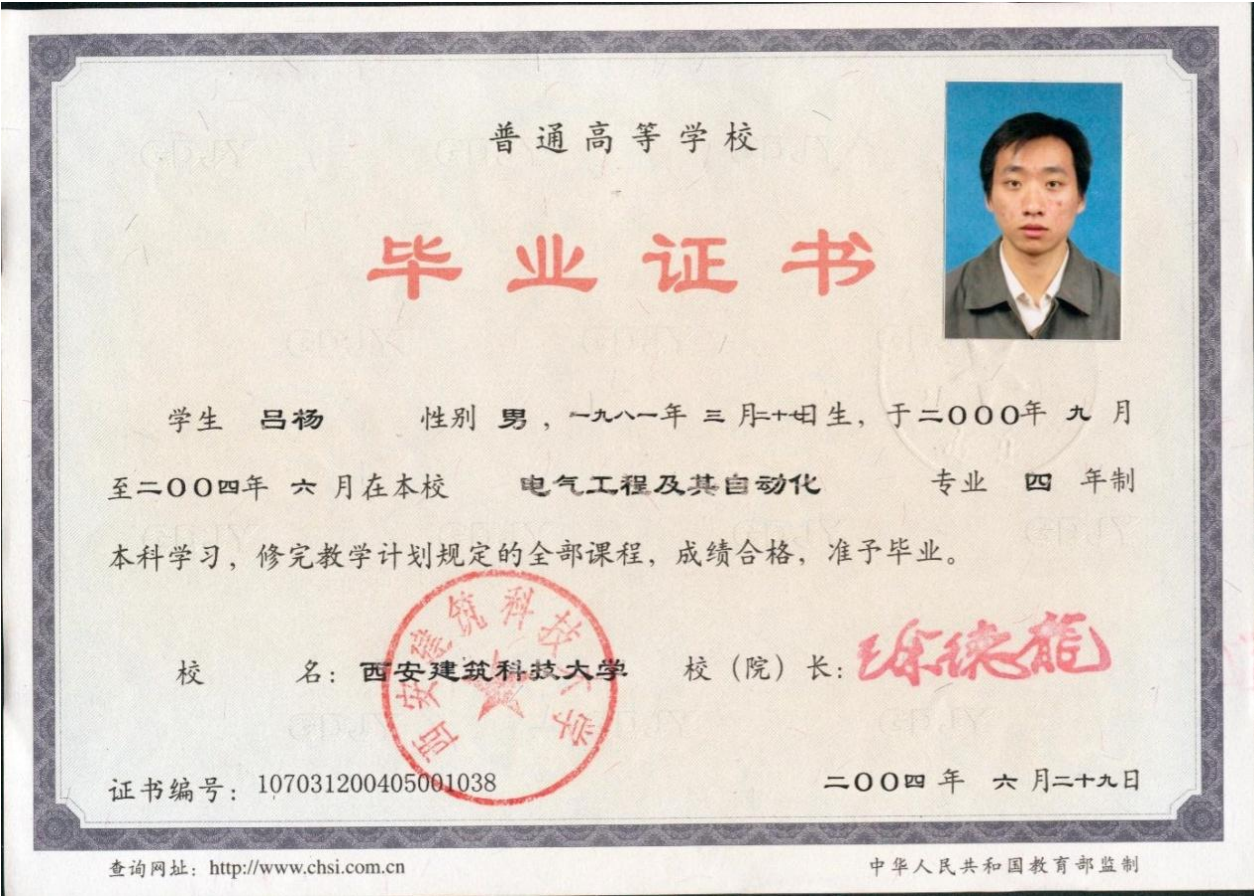 普通高等学校
毕业证书
学生 吕杨 性别 男，一九八一年 三 月二十七日生，于二〇〇〇年 九 月
至二〇〇四年 六 月在本校 电气工程及其自动化 专业 四 年制
本科学习，修完教学计划规定的全部课程，成绩合格，准予毕业。
校 名：西安建筑科技大学 校（院）长：徐德龙
西安建筑科技大学
证书编号：107031200405001038 二〇〇四 年 六 月二十九日
查询网址：http://www.chsi.com.cn 中华人民共和国教育部监制